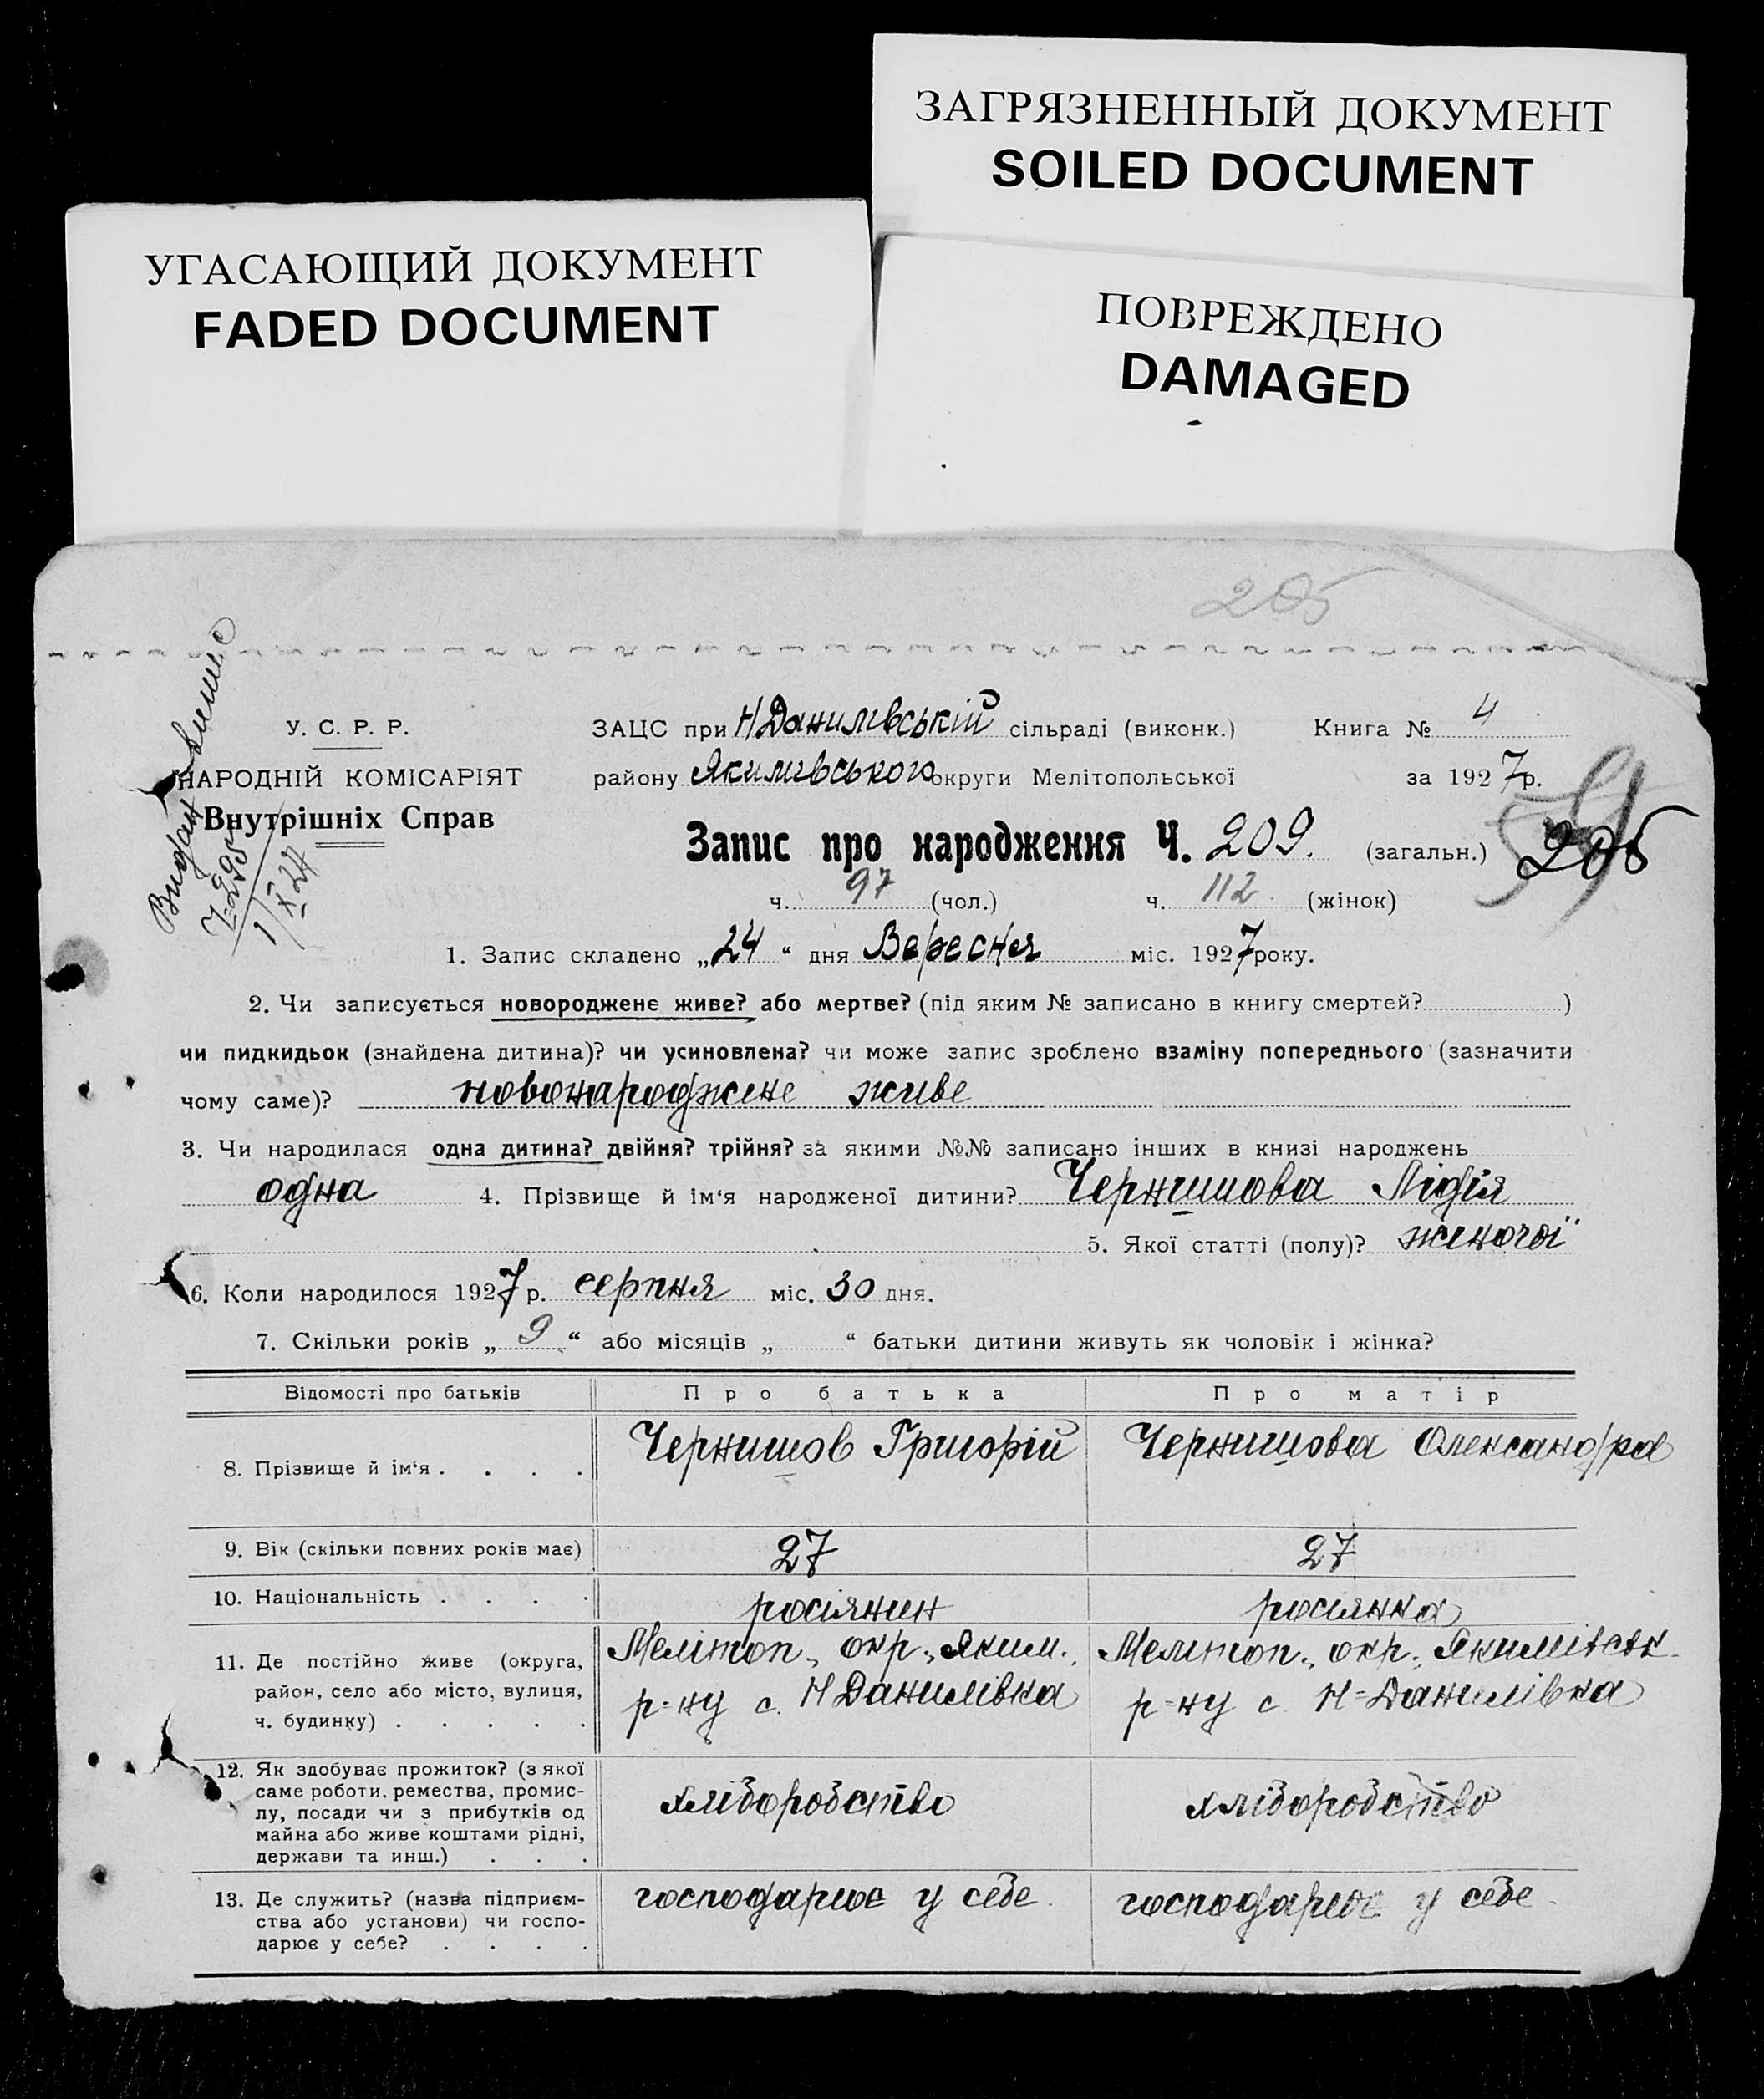 ЗАГРЯЗНЕННЫЙ ДОКУМЕНТ
SOILED DOCUMENT
УГАСАЮЩИЙ ДОКУМЕНТ
FADED DOCUMENT
ПОВРЕЖДЕНО
DAMAGED
205
Видан
У. С. Р. Р.
НАРОДНІЙ КОМІСАРІЯТ
Внутрішніх Справ
ЗАЦС при Н Данилівській сільраді (виконк.) Книга № 4
району Якимівського округи Мелітопольської за 1927 р.
Запис про народження Ч. 209. (загальн.) 205
ч. 97 (чол.) ч. 112 (жінок)
1. Запис складено „24“ дня Вересня міс. 1927 року.
2. Чи записується новороджене живе? або мертве? (під яким № записано в книгу смертей? )
чи пидкидьок (знайдена дитина)? чи усиновлена? чи може запис зроблено взаміну попереднього (зазначити
чому саме)? новонароджене живе
3. Чи народилася одна дитина? двійня? трійня? за якими №№ записано інших в книзі народжень
одна 4. Прізвище й ім‘я народженої дитини? Чернишова Лідія
5. Якої статті (полу)? жіночої
6. Коли народилося 1927 р. серпня міс. 30 дня.
7. Скільки років „ 9 “ або місяців „ “ батьки дитини живуть як чоловік і жінка?
Відомості про батьків Про батька Про матір
8. Прізвище й ім‘я . . . . Чернишов Григорій Чернишова Олександра
9. Вік (скільки повних років має) 27 27
10. Національність . . . . росіянин росіянка
11. Де постійно живе (округа,
район, село або місто, вулиця,
ч. будинку) . . . . .
Мелітоп. окр., Яким.
р-ну с. Н Данилівка
Мелітоп., окр., Якимівськ.
р-ну с. Н-Данилівка
12. Як здобуває прожиток? (з якої
саме роботи, ремества, промис-
лу, посади чи з прибутків од
майна або живе коштами рідні,
держави та инш.) . . .
хліборобство хліборобство
13. Де служить? (назва підприєм-
ства або установи) чи госпо-
дарює у себе? . . . .
господарює у себе. господарює у себе.